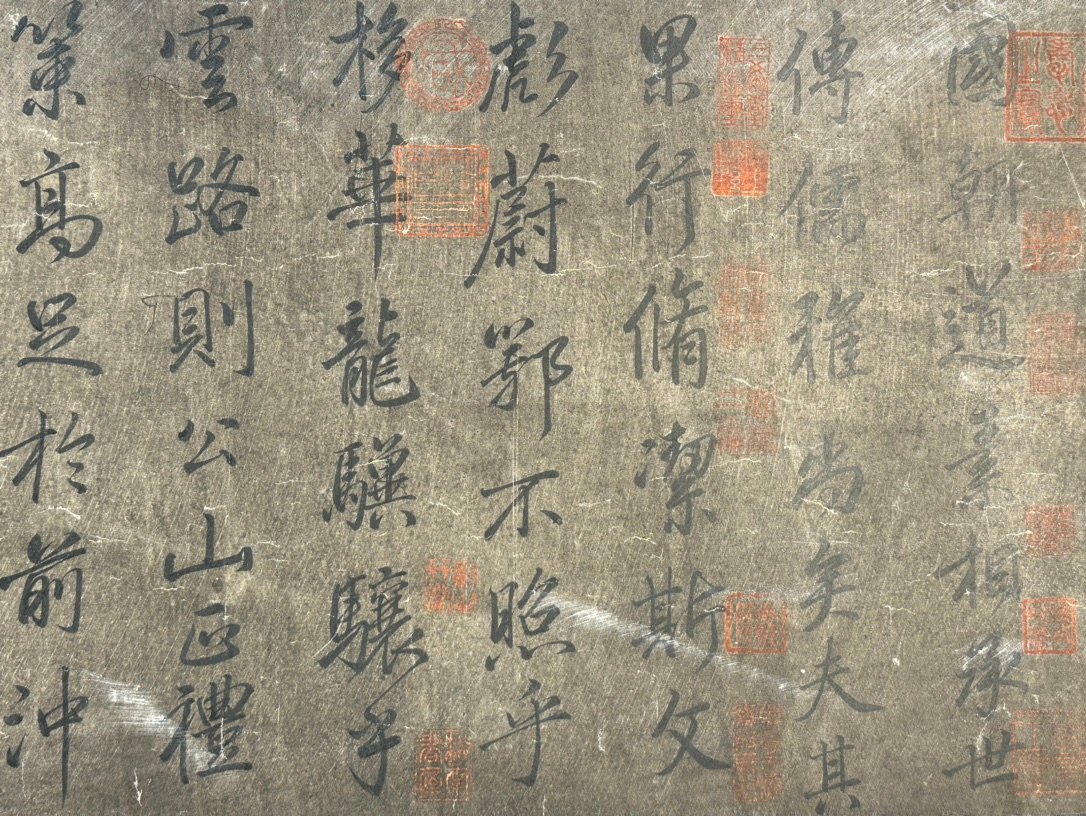 國朝道素相承世
傳儒雅尚矣夫其
果行脩潔斯文
彪蔚鄂不照乎
栘華龍驥驤乎
雲路則公山正禮
策高足於前沖